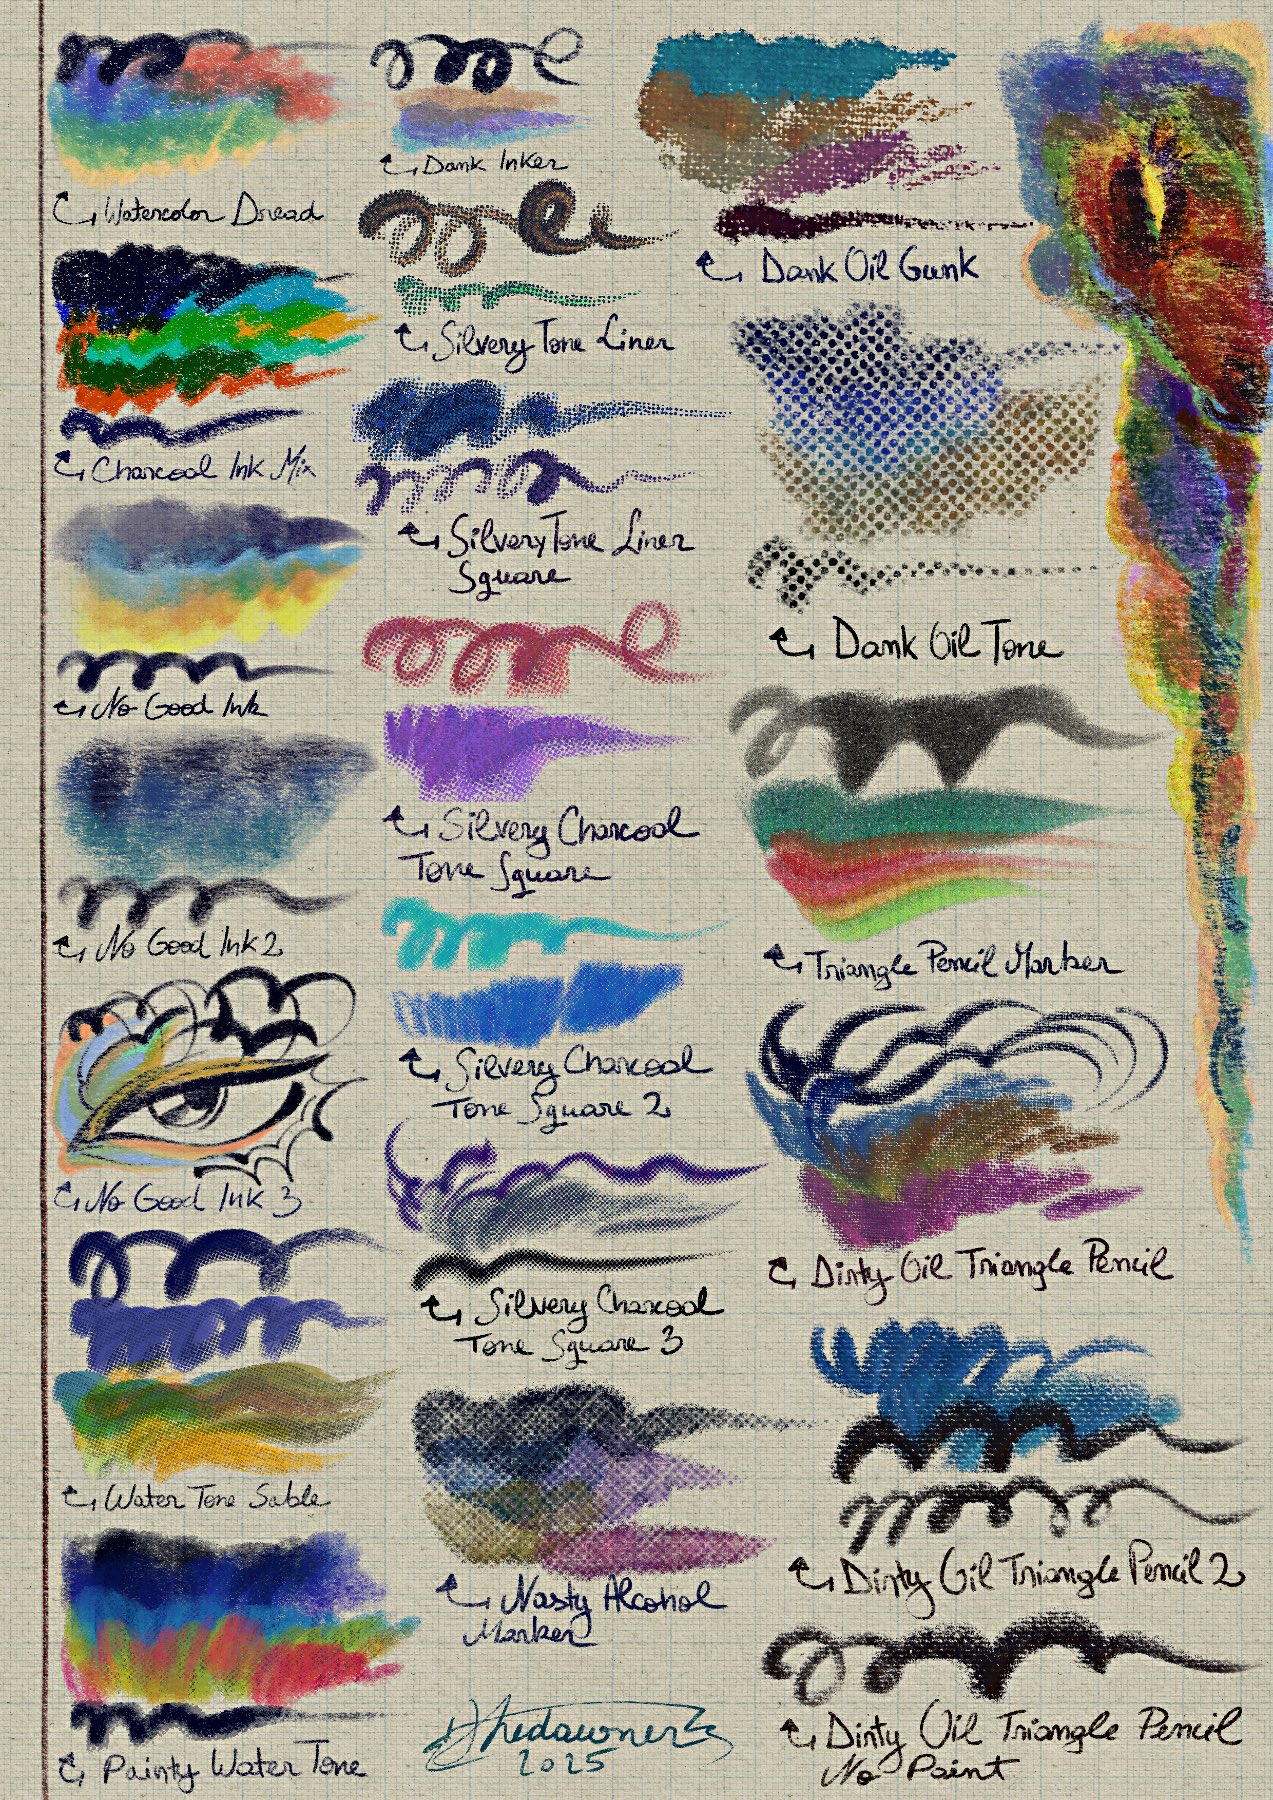 Watercolor Dread
Charcoal Ink Mix
No Good Ink
No Good Ink 2
No Good Ink 3
Water Tone Sable
Painty Water Tone
Dank Inker
Silvery Tone Liner
Silvery Tone Liner
Square
Silvery Charcoal
Tone Square
Silvery Charcoal
Tone Square 2
Silvery Charcoal
Tone Square 3
Nasty Alcohol
Marker
2025
Dank Oil Gunk
Dank Oil Tone
Triangle Pencil Marker
Dirty Oil Triangle Pencil
Dirty Oil Triangle Pencil 2
Dirty Oil Triangle Pencil
No Paint